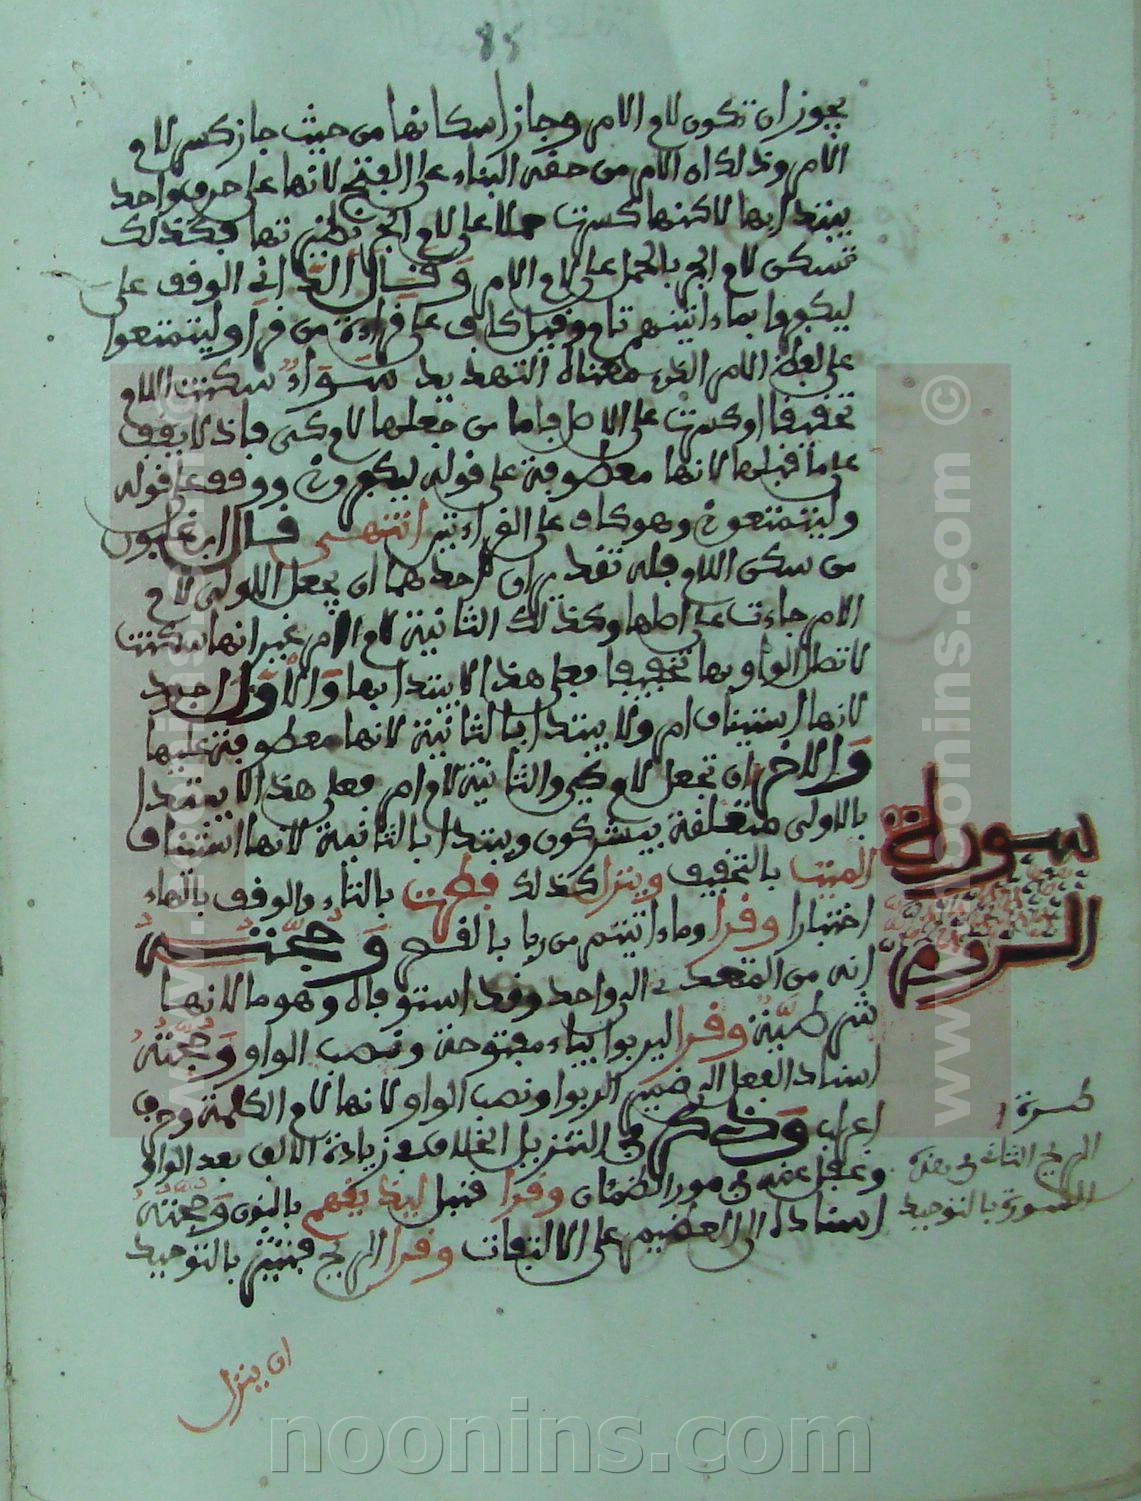 85
يجوز ان تكون لام الامر وجاز اسكانها من حيث جاز كسر لام
الامر وذلك ان الامر من حقه البناء على الفتح لانها على حرف واحد
يبتدا بها لاكنها كسرت حملا على لام الجر نظيرتها فكذلك
تسكن لام الجر بالحمل على لام الامر وقال الداني الوقف على
ليكفروا بماءاتينهم تام وقيل كاف على قراءة من قرا وليتمتعوا
على لفظ الامر الذي معناه التهديد سواء سكنت اللام
تخفيفا او كسرت على الاصل فاما من جعلها لام كي فانه لا يقف
على ما قبلها لانها معطوفة على قوله ليكفروا ووقف على قوله
وليتمتعوا وهو كاف على القراءتين انتهى قال ابن غلبون
من سكن اللام فله تقديران احدهما ان يجعل الاولى لام
الامر جاءت على اصلها وكذلك الثانية لام الامر غير انها سكنت
لاتصال الواو بها تخفيفا فعلى هذا لا يبتدا بها والاول اجود
لانها استيناف امر ولا يبتدا بالثانية لانها معطوفة عليها
والاخر ان تجعل لام كي والثانية لام امر فعلى هذا لا يبتدا
بالاولى متعلقة بيشركون ويبتدا بالثانية لانها استيناف
الميت بالتخفيف وينزل كذلك فطرت بالتاء والوقف بالهاء
سورة الروم
اختبارا وقرا وماءاتيتم من ربا بالقصر وحجته
انه من المتعدي الى واحد وقد استوفاه وهو ما لانها
شرطية وقرا ليربوا بياء مفتوحة ونصب الواو وحجته
اسناد الفعل الى ضمير الربوا ونصب الواو لانها لام الكلمة وحرف
اعراب وذكر في التنزيل الخلاف في زيادة الالف بعد الواو
وغفل عنه في مورد الظمئان وقرا قنبل ليذيقهم بالنون وحجته
اسناده الى العظيم على الالتفات وقرا الريح فتثير بالتوحيد
طرة
الريح الثاني في هذه
السورة بالتوحيد
ان ينزل
www.noonins.com ©
noonins.com